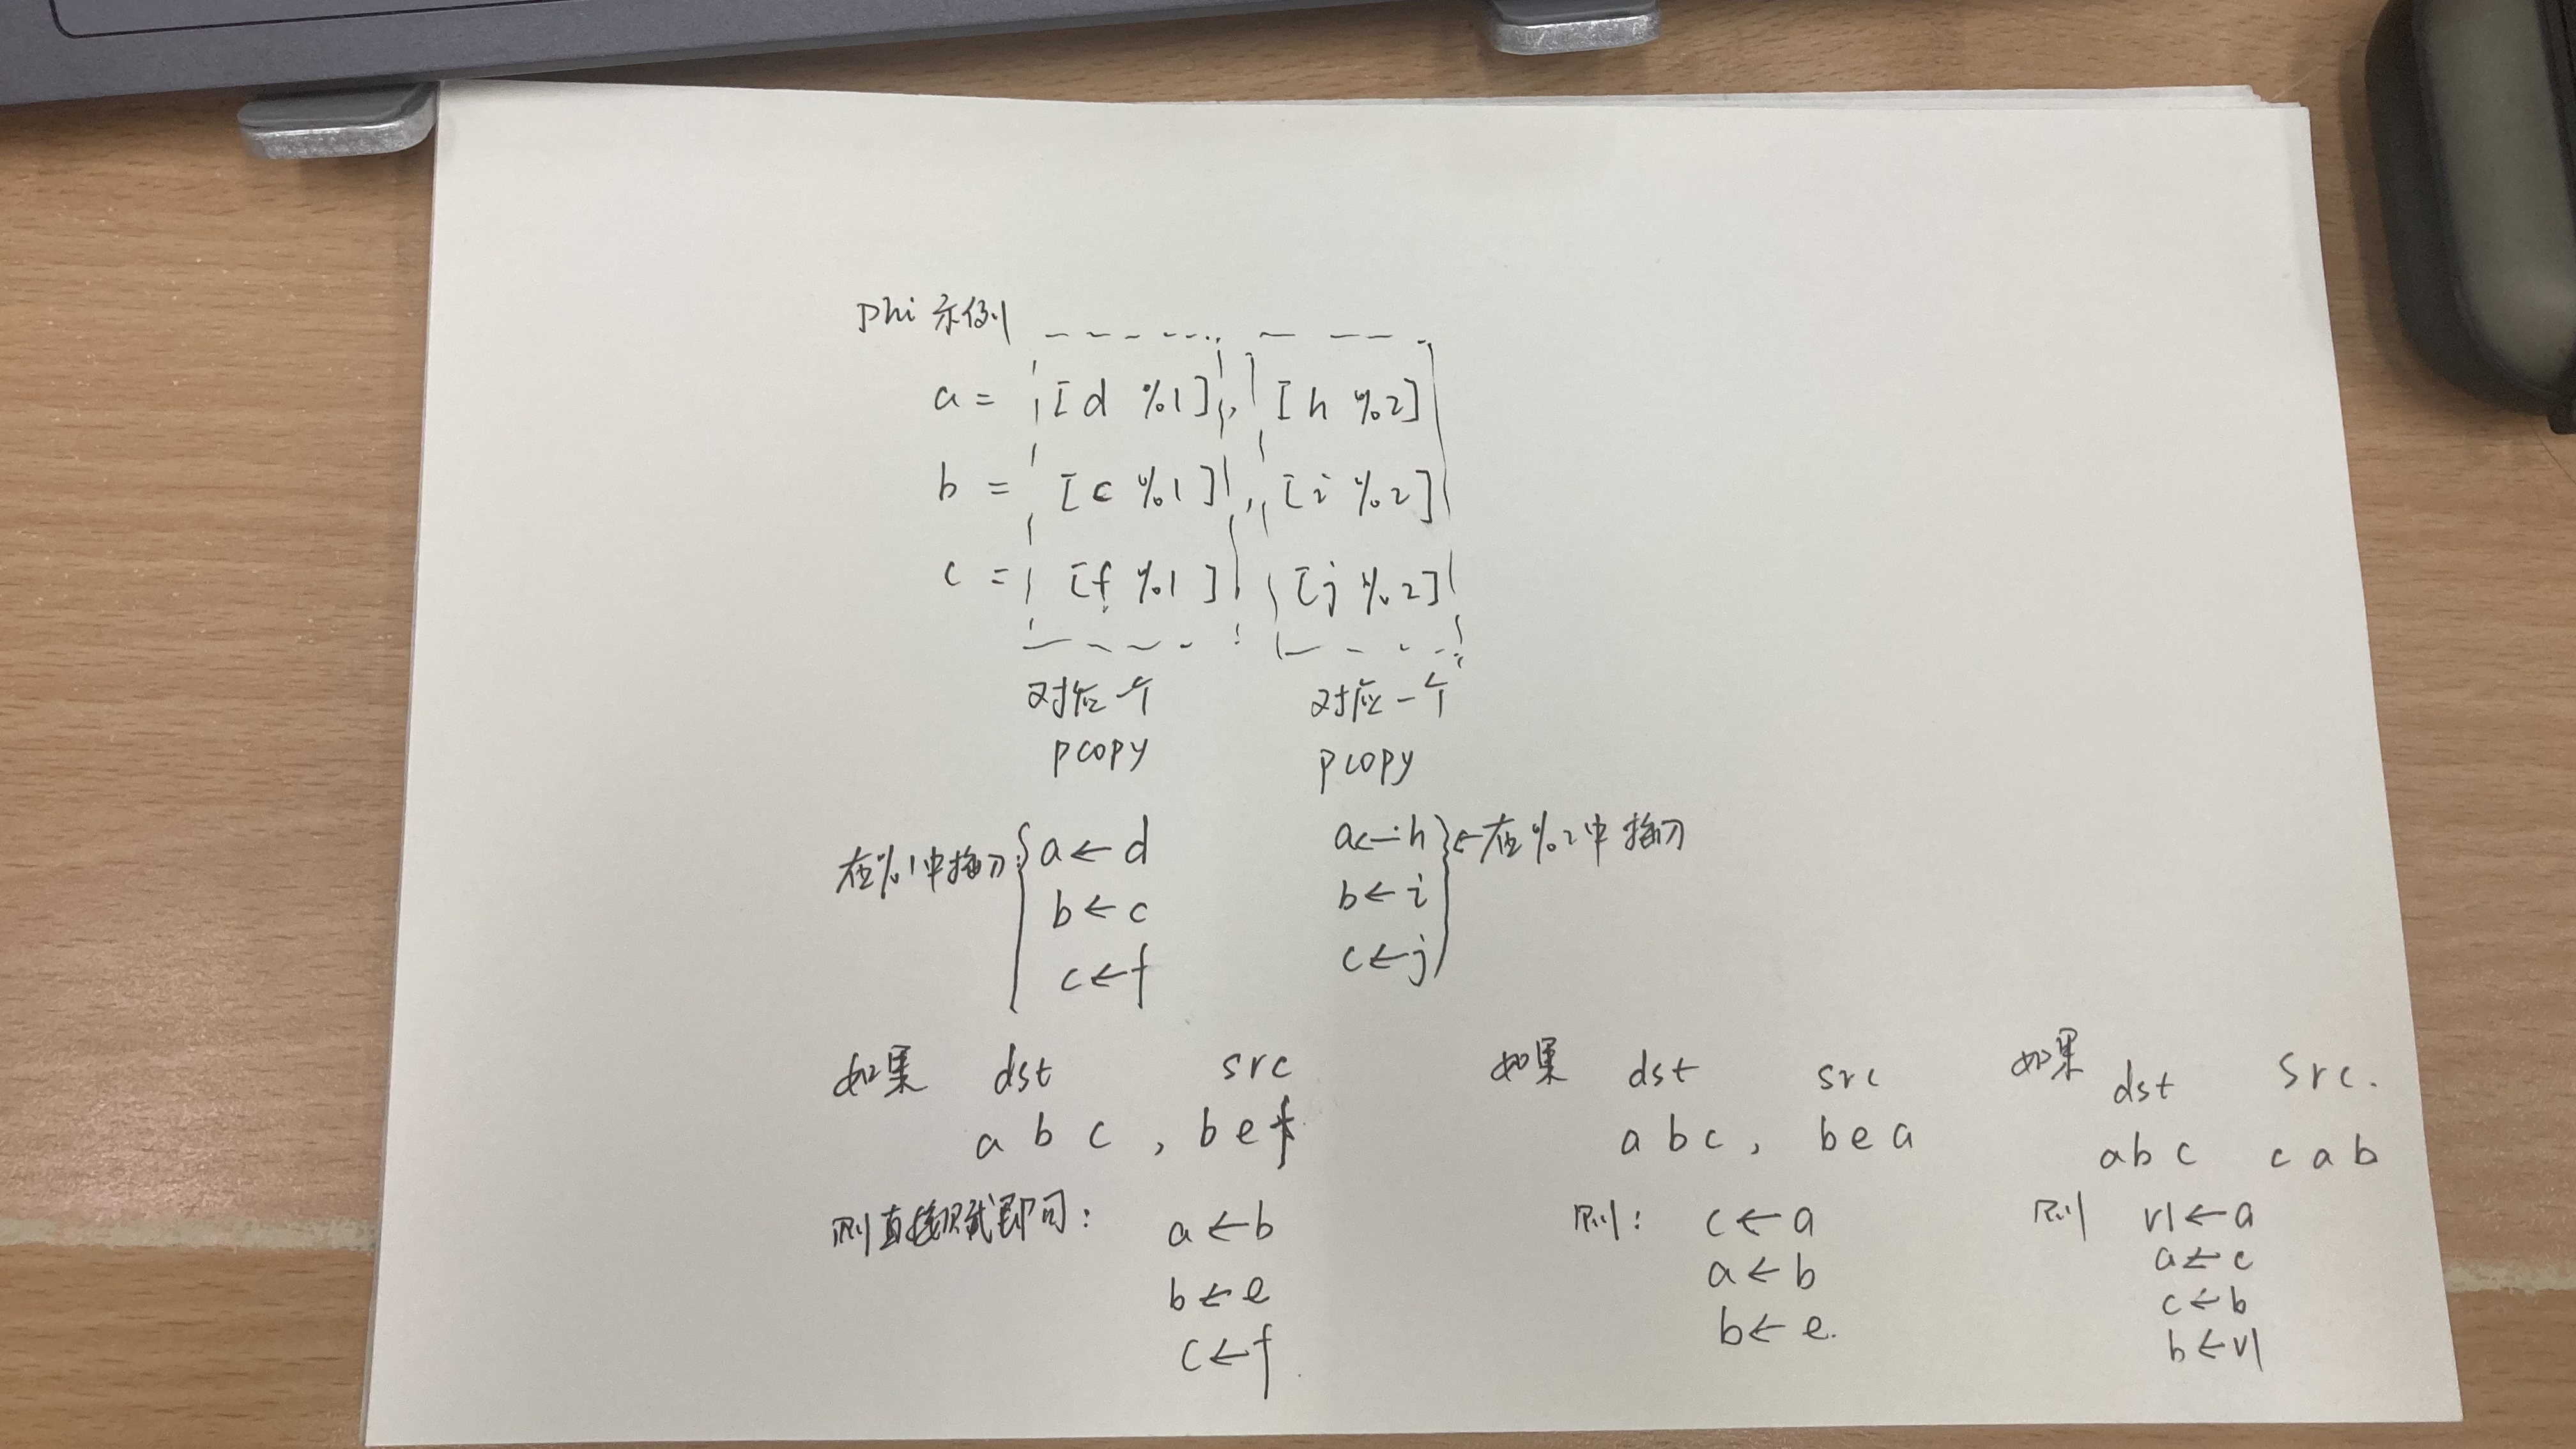 phi 示例
a = [d %1], [h %2]
b = [c %1], [i %2]
c = [f %1] [j %2]
对应一个 对应一个
pcopy pcopy
在%1中插入: { a ← d
b ← c
c ← f
a ← h } ← 在%2中插入
b ← i
c ← j
如果 dst src
a b c , b e f
则直接赋即可:
a ← b
b ← e
c ← f
如果 dst src
a b c , b e a
则: c ← a
a ← b
b ← e.
如果 dst src.
a b c c a b
则 v1 ← a
a ← c
c ← b
b ← v1